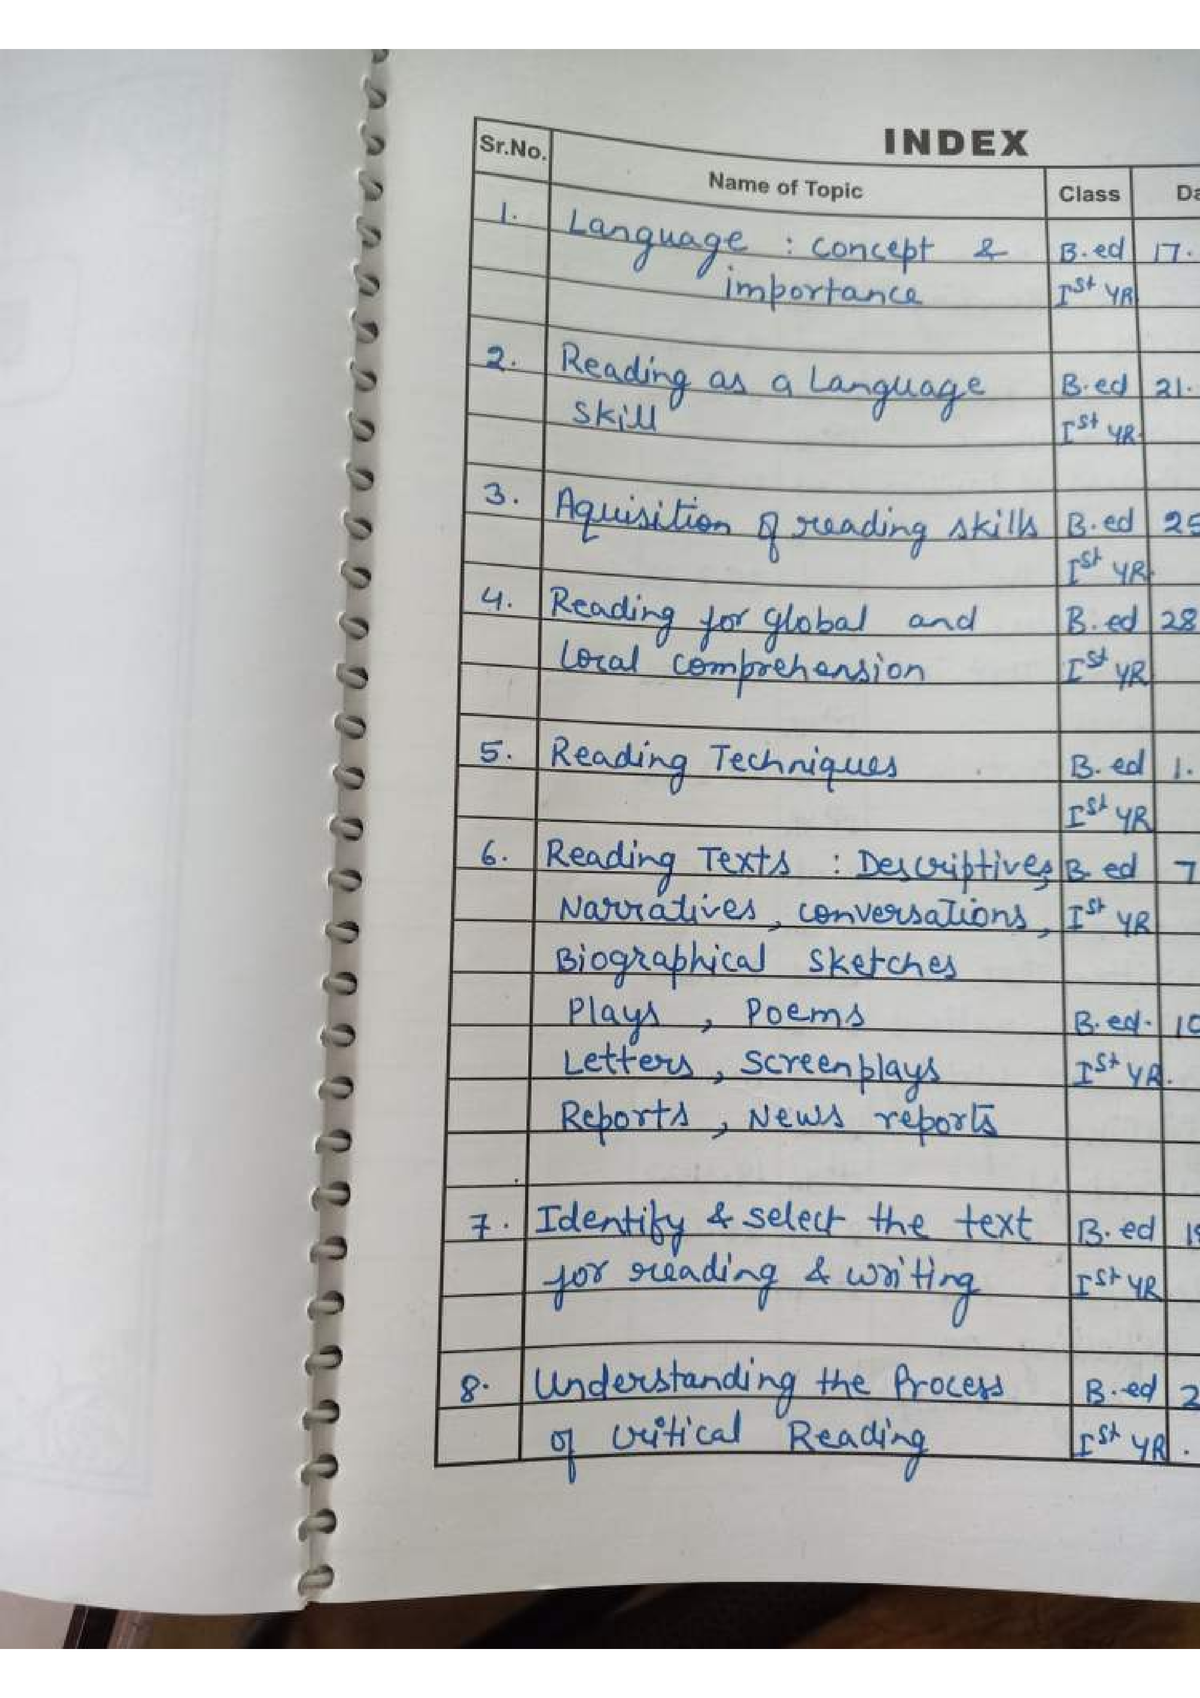 INDEX
Sr.No. Name of Topic Class Da
1. Language : concept & B.ed 17.
importance Ist YR
2. Reading as a Language B.ed 21.
Skill Ist YR.
3. Aquisition of reading skills B.ed 25
Ist YR.
4. Reading for global and B.ed 28
local comprehension Ist YR
5. Reading Techniques B.ed 1.
Ist YR
6. Reading Texts : Descriptives, B.ed 7
Narratives, conversations, Ist YR
Biographical sketches
Plays , Poems B.ed. 10
Letters, Screenplays Ist YR.
Reports , News reports
7. Identify & select the text B.ed
for reading & writing Ist YR
8. Understanding the Process B.ed 2
of critical Reading Ist YR.